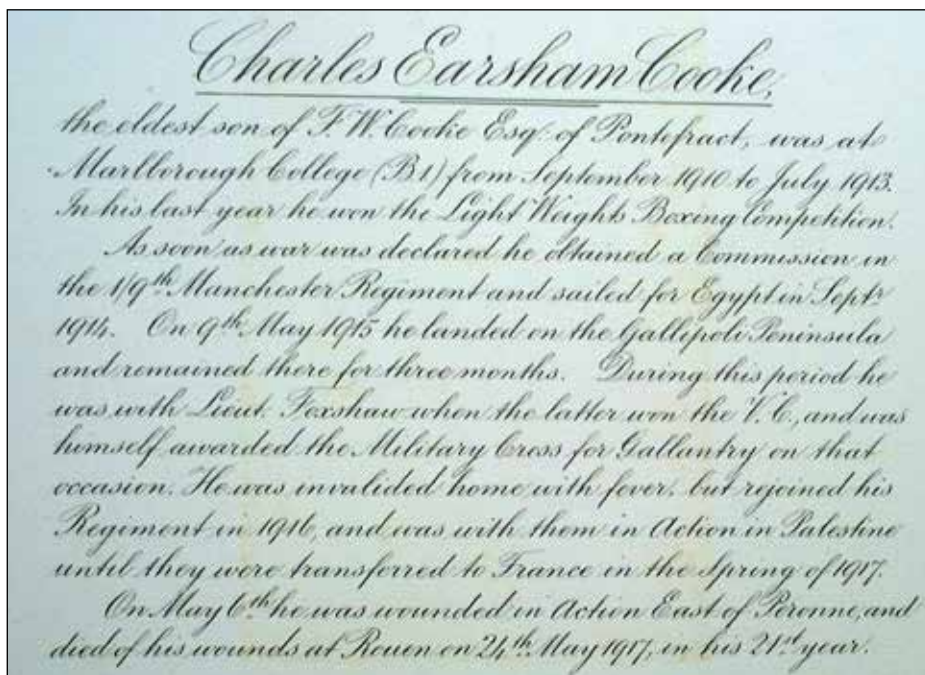 Charles Earsham Cooke,
the eldest son of F. W. Cooke Esqr. of Pontefract, was at
Marlborough College (B1) from September 1910 to July 1913.
In his last year he won the Light Weights Boxing Competition.
As soon as war was declared he obtained a Commission in
the 1/9th Manchester Regiment and sailed for Egypt in Septr.
1914. On 9th May 1915 he landed on the Gallipoli Peninsula
and remained there for three months. During this period he
was with Lieut. Foxshaw when the latter won the V.C., and was
himself awarded the Military Cross for Gallantry on that
occasion. He was invalided home with fever, but rejoined his
Regiment in 1916, and was with them in Action in Palestine
until they were transferred to France in the Spring of 1917.
On May 6th he was wounded in Action East of Peronne, and
died of his wounds at Rouen on 24th May 1917, in his 21st year.